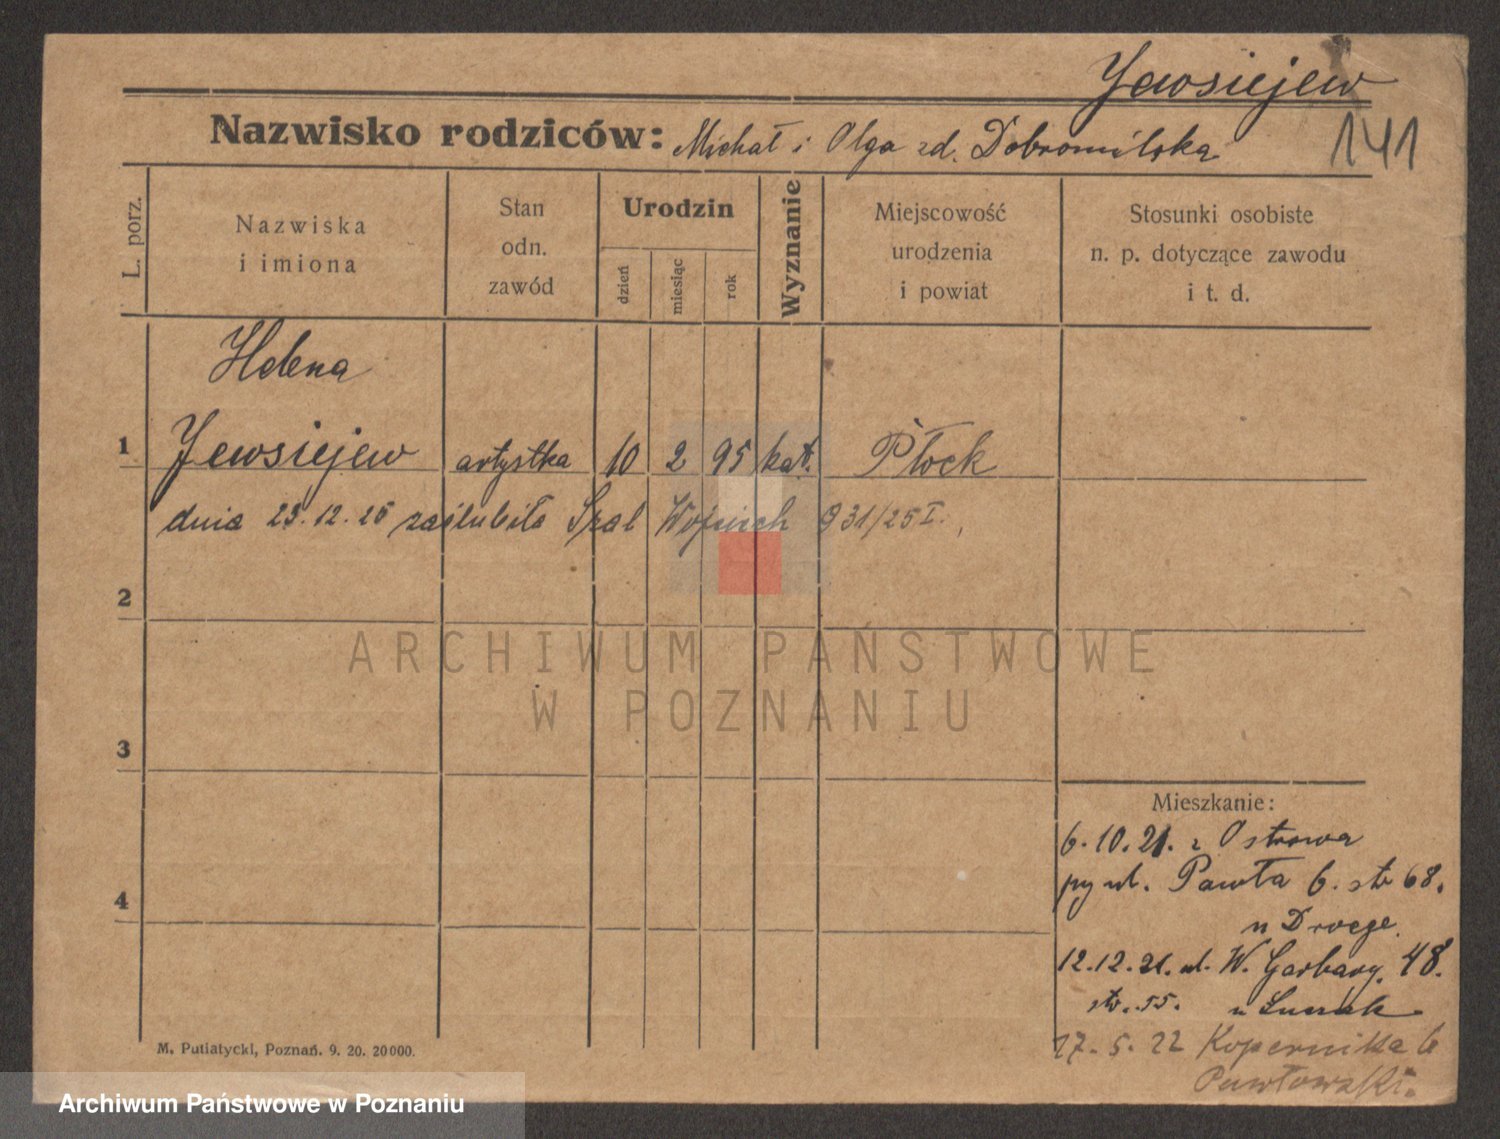 Jewsiejew
Nazwisko rodziców: Michał i Olga zd. Dobromilska
141
L. porz.
Nazwiska
i imiona
Stan
odn.
zawód
Urodzin
dzień
miesiąc
rok
Wyznanie
Miejscowość
urodzenia
i powiat
Stosunki osobiste
n. p. dotyczące zawodu
i t. d.
Helena
1 Jewsiejew artystka 10 2 95 kat. Płock
dnia 23.12.25 zaślubiła Szal Wojciech 931/25 I.
2
ARCHIWUM PAŃSTWOWE
W POZNANIU
3
Mieszkanie:
6.10.21. z Ostrowa
ul. Pawła 6. str 68.
4
u Droege.
12.12.21. ul. W. Garbary. 48.
str. 55. u
17.5.22 Kopernika 6
Pawłowski.
M. Putiatycki, Poznań. 9. 20. 20000.
Archiwum Państwowe w Poznaniu